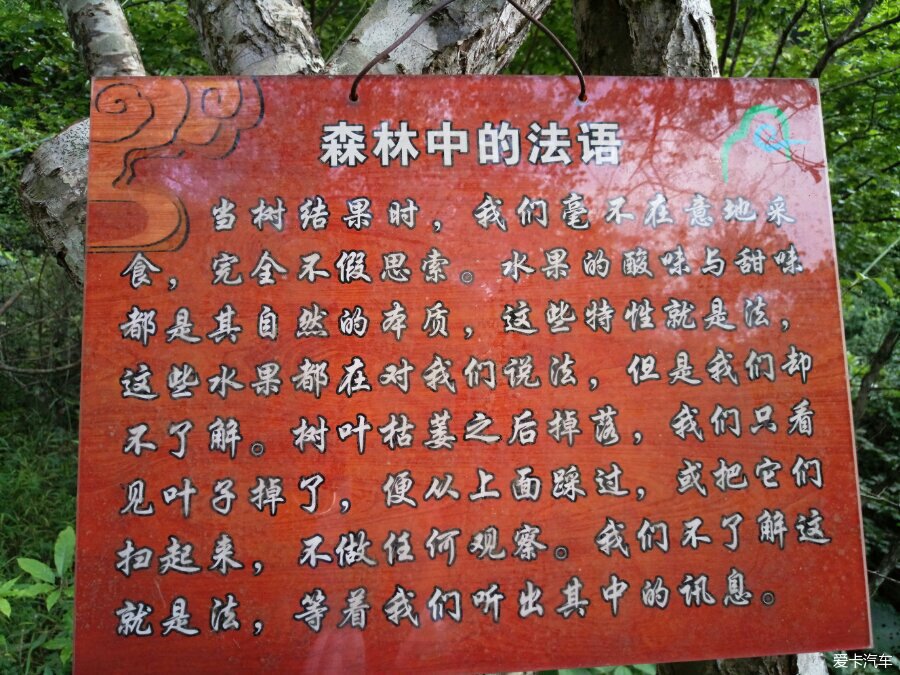 森林中的法语
当树结果时，我们毫不在意地采
食，完全不假思索。水果的酸味与甜味
都是其自然的本质，这些特性就是法，
这些水果都在对我们说法，但是我们却
不了解。树叶枯萎之后掉落，我们只看
见叶子掉了，便从上面踩过，或把它们
扫起来，不做任何观察。我们不了解这
就是法，等着我们听出其中的讯息。
爱卡汽车